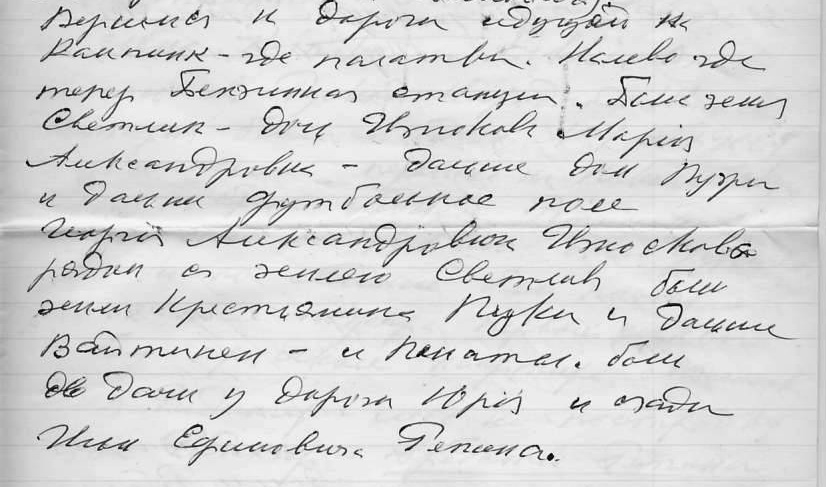 Вернемся к дороги идущей на
Кампинк - где палатки. Налево где
теперь Бензинная станция. Была земля
Светлик - дом Износков Мария
Александровна - дальше дом Пузри
и дальше футбольное поле
Георгия Александровича Износкова
рядом с землею Светлик была
земля Крестьянина Пузки и дальше
Вайтинен - и Пенаты. были
две дачи у дороги Юрия и сзади
Ильи Ефимовича Репина.